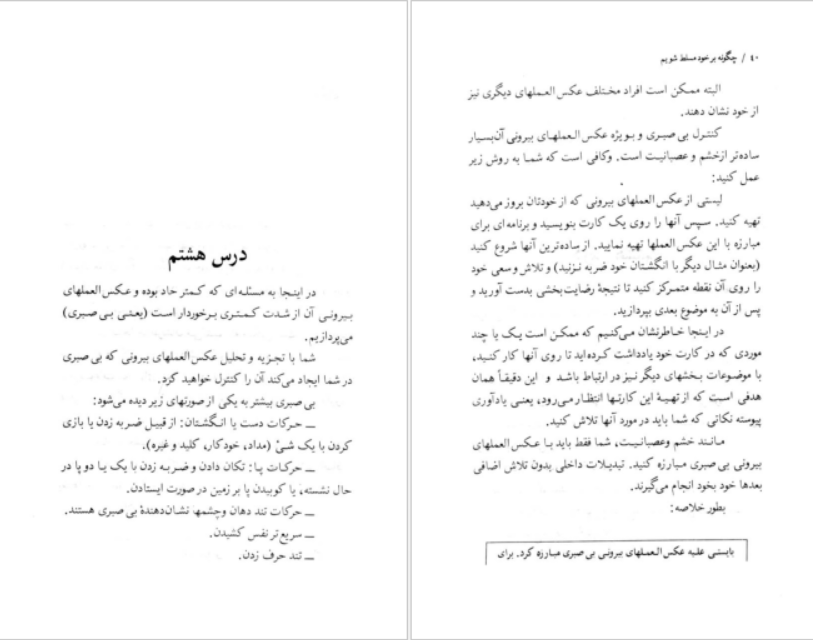 درس هشتم
در اینجا به مسئله‌ای که کمتر حاد بوده و عکس العملهای
بیرونی آن از شدت کمتری برخوردار است (یعنی بی صبری)
می‌پردازیم.
شما با تجزیه و تحلیل عکس العملهای بیرونی که بی صبری
در شما ایجاد می‌کند آن را کنترل خواهید کرد.
بی صبری بیشتر به یکی از صورتهای زیر دیده می‌شود:
ــ حرکات دست یا انگشتان: از قبیل ضربه زدن یا بازی
کردن با یک شئ (مداد، خودکار، کلید و غیره).
ــ حرکات پا: تکان دادن و ضربه زدن با یک یا دو پا در
حال نشسته، یا کوبیدن پا بر زمین در صورت ایستادن.
ــ حرکات تند دهان وچشمها نشان‌دهندهٔ بی صبری هستند.
ــ سریع تر نفس کشیدن.
ــ تند حرف زدن.
٤٠ / چگونه بر خود مسلط شویم
البته ممکن است افراد مختلف عکس العملهای دیگری نیز
از خود نشان دهند.
کنترل بی صبری و بویژه عکس العملهای بیرونی آن‌بسیار
ساده‌تر ازخشم و عصبانیت است. وکافی است که شما به روش زیر
عمل کنید:
لیستی از عکس العملهای بیرونی که از خودتان بروز می‌دهید
تهیه کنید. سپس آنها را روی یک کارت بنویسید و برنامه‌ای برای
مبارزه با این عکس العملها تهیه نمایید. از ساده‌ترین آنها شروع کنید
(بعنوان مثال دیگر با انگشتان خود ضربه نزنید) و تلاش و سعی خود
را روی آن نقطه متمرکز کنید تا نتیجهٔ رضایت‌بخشی بدست آورید و
پس از آن به موضوع بعدی بپردازید.
در اینجا خاطرنشان می‌کنیم که ممکن است یک یا چند
موردی که در کارت خود یادداشت کرده‌اید تا روی آنها کار کنید،
با موضوعات بخشهای دیگر نیز در ارتباط باشد و این دقیقاً همان
هدفی است که از تهیهٔ این کارتها انتظار می‌رود، یعنی یادآوری
پیوسته نکاتی که شما باید در مورد آنها تلاش کنید.
مانند خشم وعصبانیت، شما فقط باید با عکس العملهای
بیرونی بی صبری مبارزه کنید. تبدیلات داخلی بدون تلاش اضافی
بعدها خود بخود انجام می‌گیرند.
بطور خلاصه:
بایستی علیه عکس العملهای بیرونی بی صبری مبارزه کرد. برای